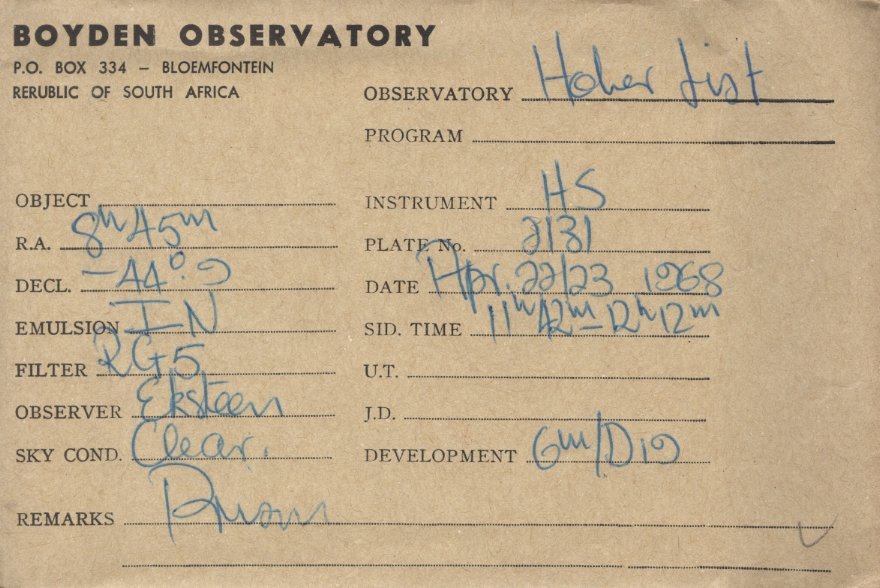 BOYDEN OBSERVATORY
P.O. BOX 334 – BLOEMFONTEIN
RERUBLIC OF SOUTH AFRICA
OBSERVATORY Hoher List
PROGRAM
OBJECT
R.A. 8h 45m
DECL. -44°.9
EMULSION I-N
FILTER RG5
OBSERVER Eksteen
SKY COND. Clear.
INSTRUMENT HS
PLATE No. 2131
DATE Apr. 22/23 1968
SID. TIME 11h 42m - 12h 12m
U.T.
J.D.
DEVELOPMENT 6m/D19
REMARKS